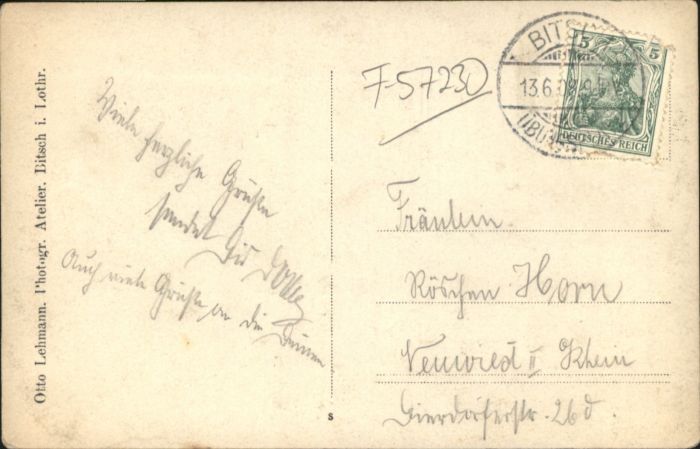 Otto Lehmann. Photogr. Atelier. Bitsch i. Lothr.
Viele herzliche Grüße
sendet Dir
Auch viele Grüße an die Deinen
F-57230
BITSCH
13.6.09
(ÜBUNGS
5 5
DEUTSCHES REICH
Fräulein
Röschen Horn
Neuwied II Rhein
Dierdorferstr. 26d.
s